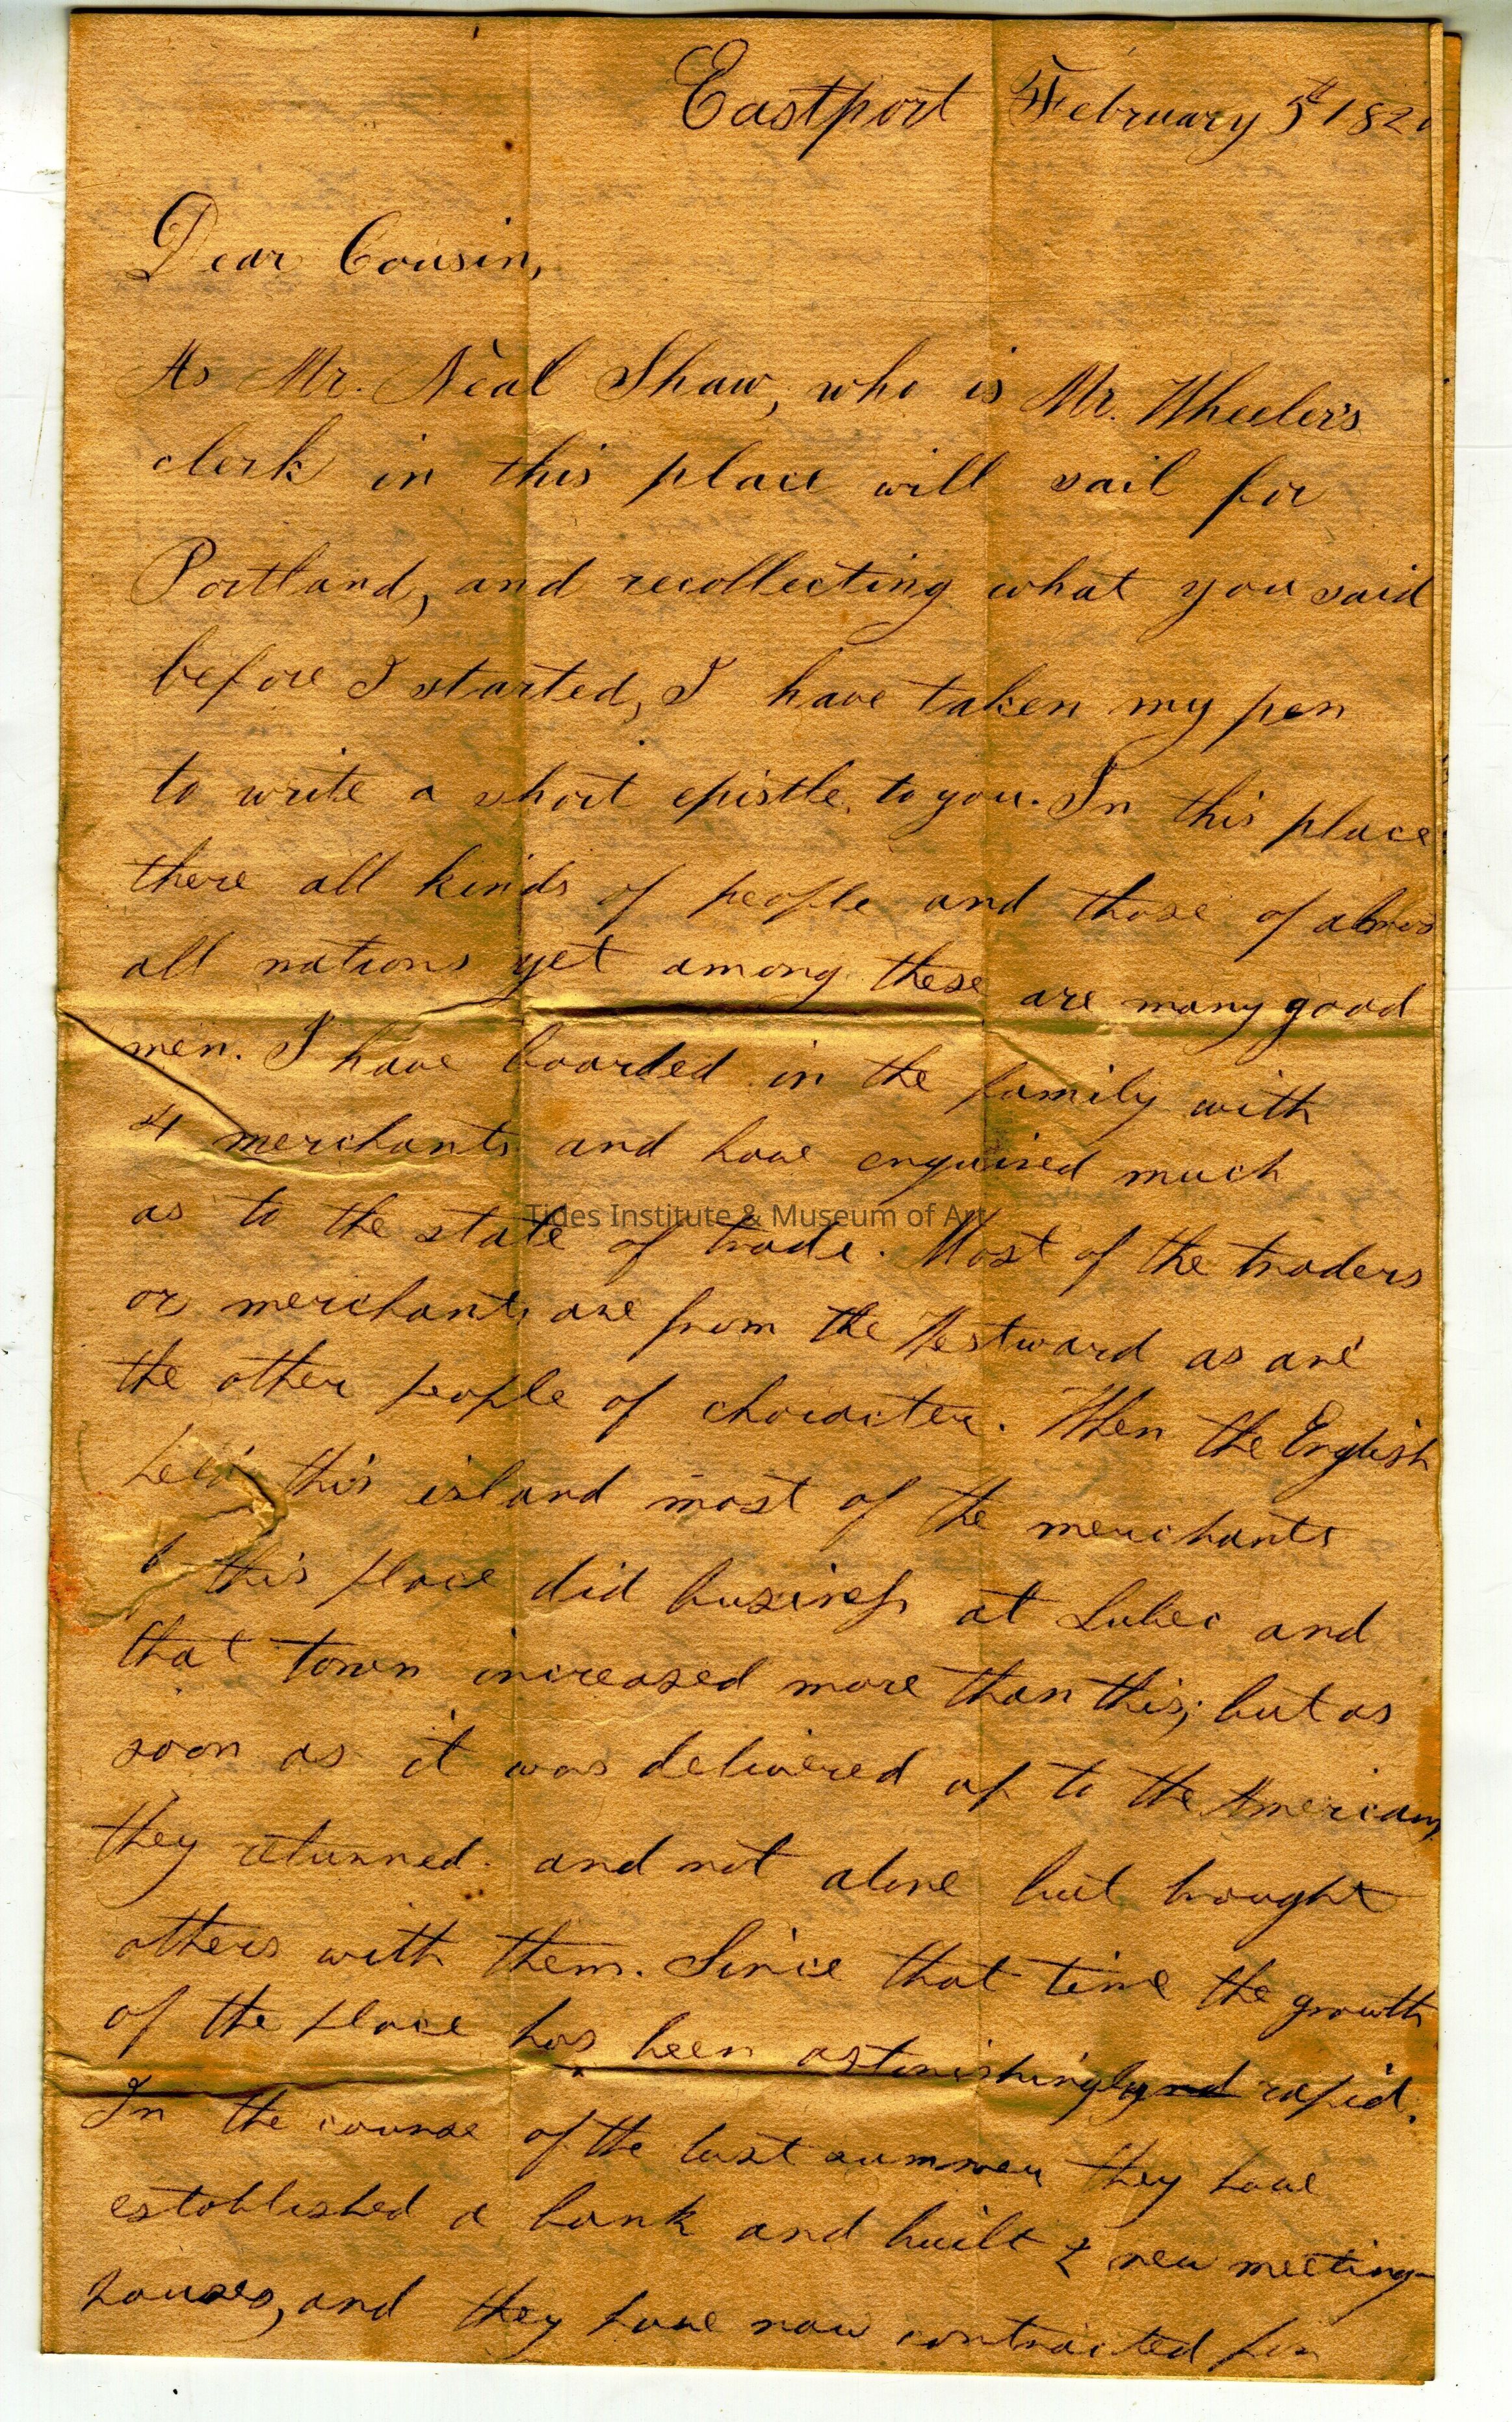 Eastport February 5th 1820
Dear Cousin,
As Mr. Neal Shaw, who is Mr. Wheeler's
clerk in this place will sail for
Portland, and recollecting what you said
before I started, I have taken my pen
to write a short epistle to you. In this place
there all kinds of people and those of almos
all nations yet among these are many good
men. I have boarded in the family with
4 merchants and have enquired much
as to the state of trade. Most of the traders
Tides Institute & Museum of Art
or merchants are from the Westward as are
the other people of character. When the English
held this island most of the merchants
of this place did business at Lubec and
that town increased more than this; but as
soon as it was delivered up to the Americans
they returned and not alone but brought
others with them. Since that time the growth
of the place has been astonishingly rapid.
In the course of the last summer they have
established a bank and built 2 new meeting-
houses, and they have now contracted for